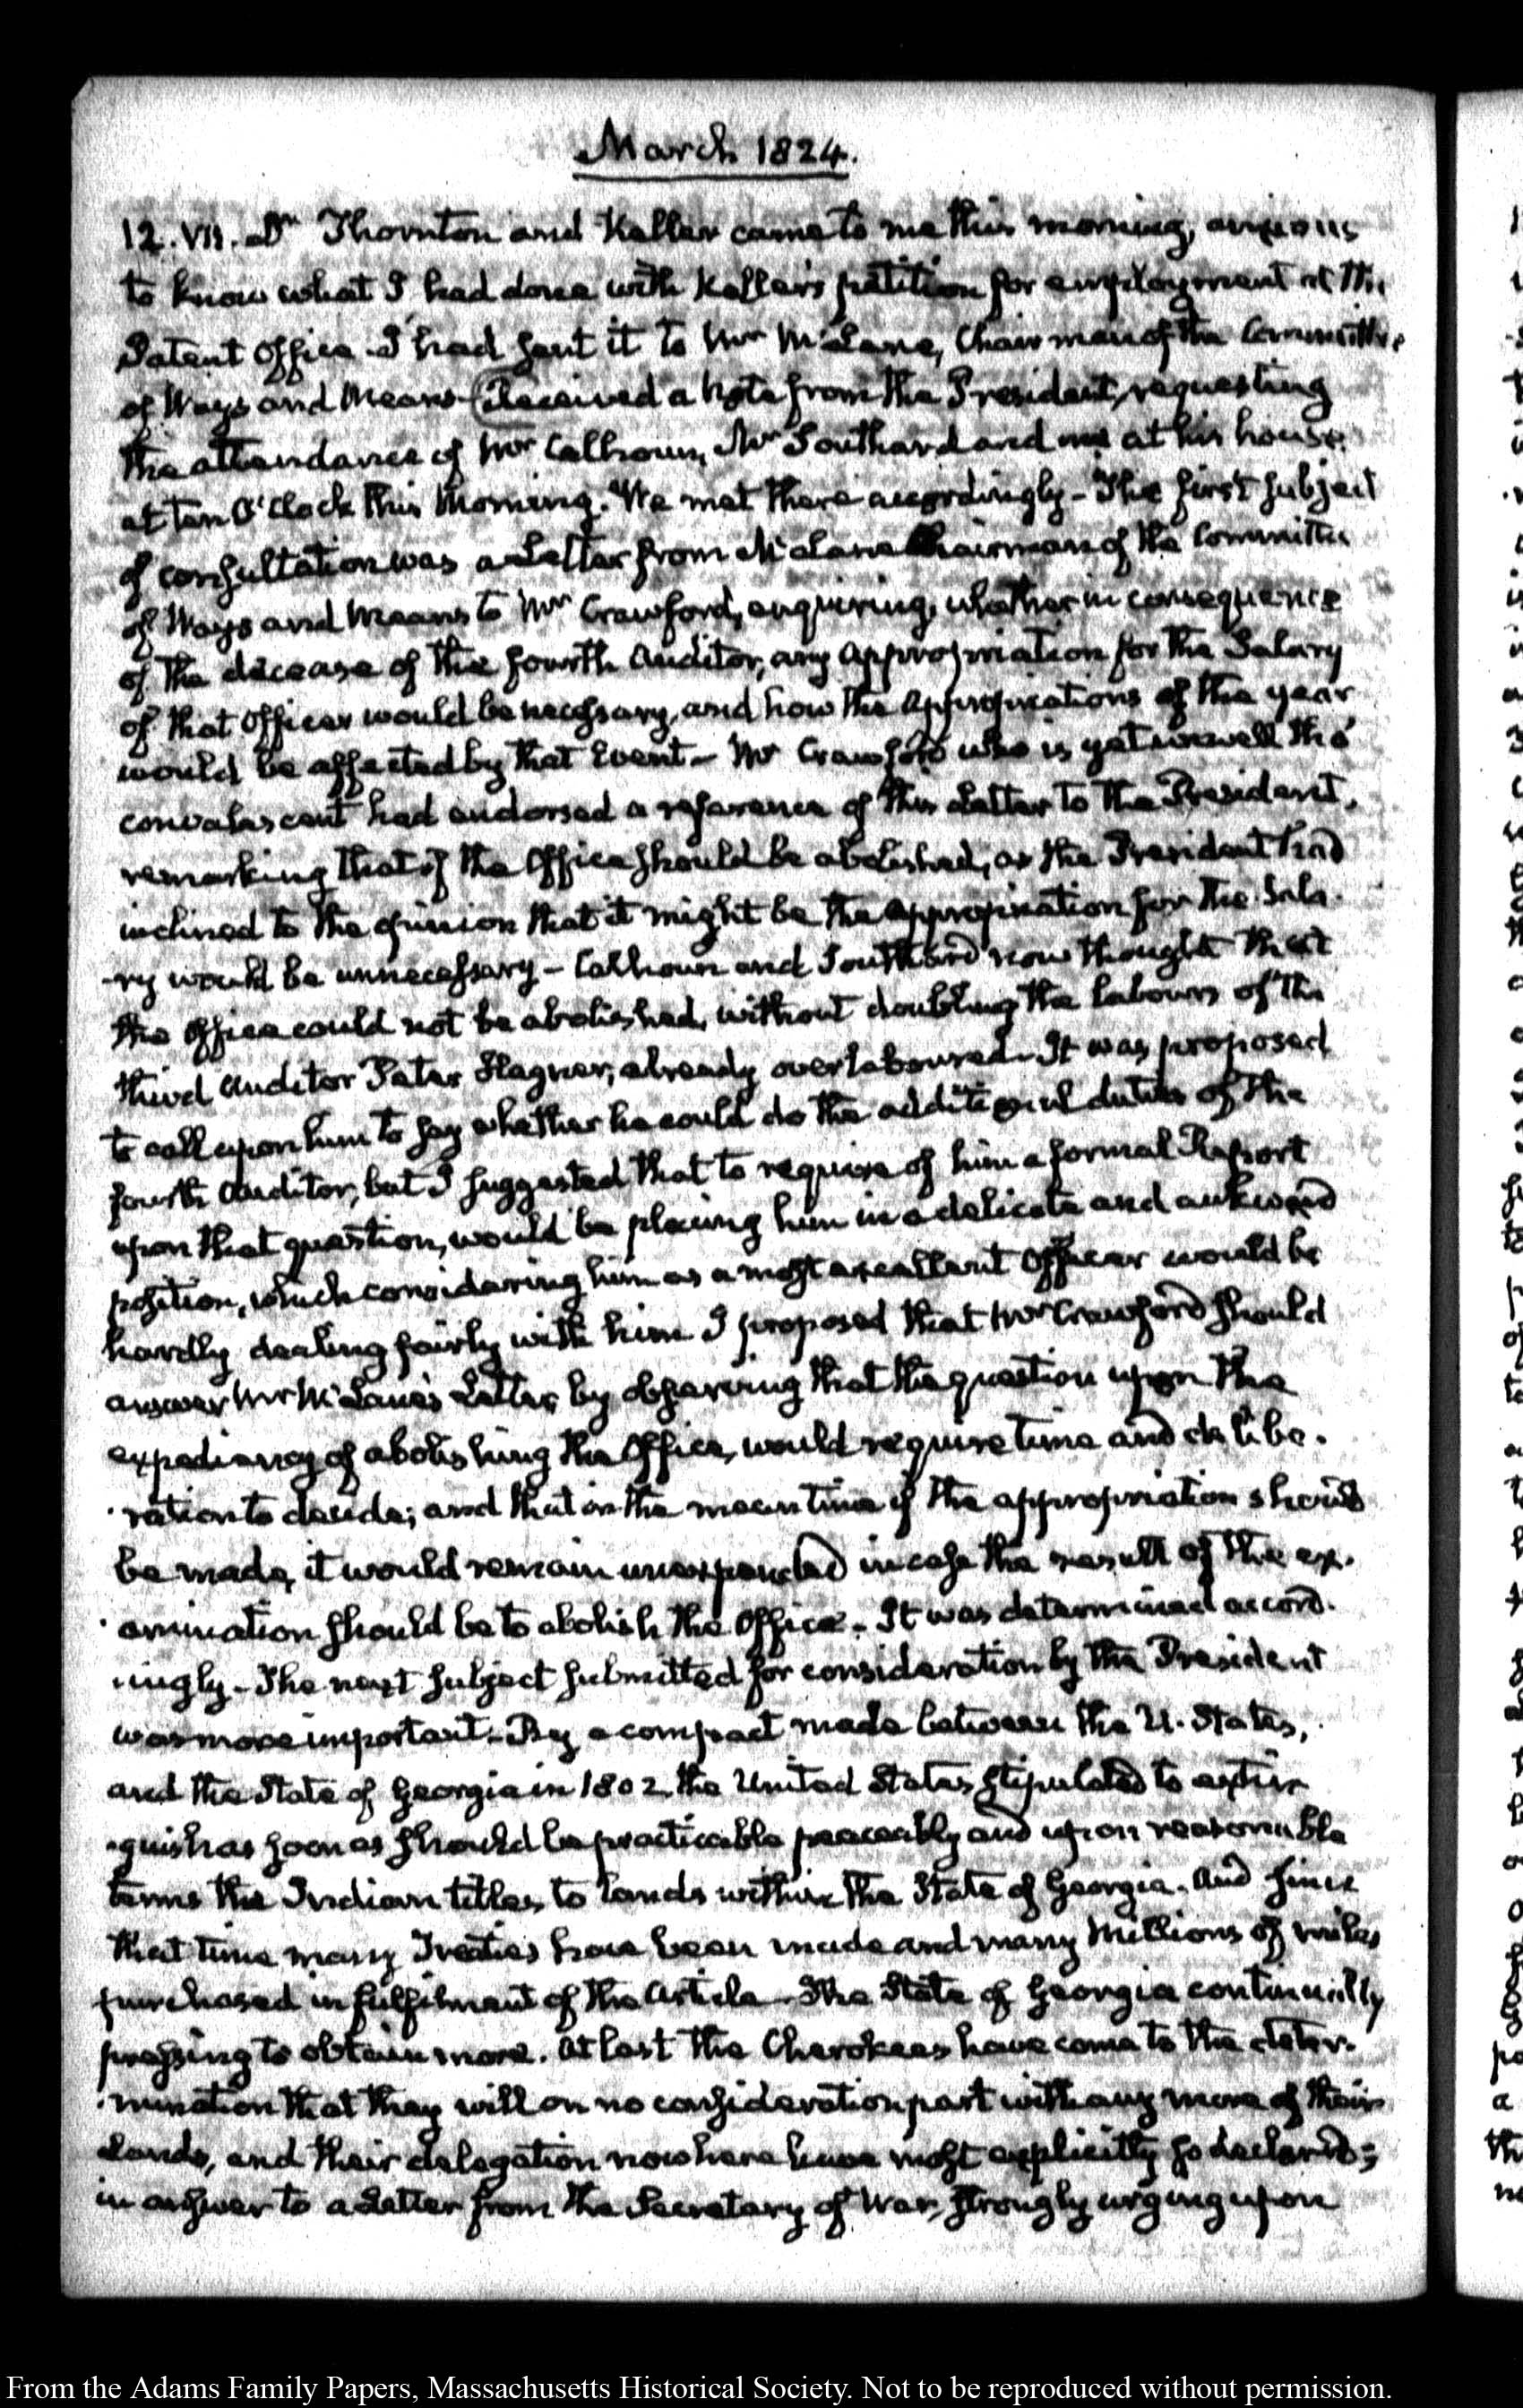 March 1824.
12. VII. Dr. Thornton and Keller came to me this morning, anxious
to know what I had done with Keller's petition for employment at the
Patent Office. I had sent it to Mr McLane, Chairman of the Committee
of Ways and Means. Received a Note from the President, requesting
the attendance of Mr Calhoun, Mr Southard and me at his house
at ten O'Clock this Morning. We met there accordingly - The first subject
of consultation was a Letter from McLane Chairman of the Committee
of Ways and Means to Mr Crawford, enquiring, whether in consequence
of the decease of the fourth Auditor, any appropriation for the Salary
of that Officer would be necessary, and how the appropriations of the year
would be affected by that Event - Mr Crawford who is yet unwell tho'
convalescent had endorsed a reference of this Letter to the President,
remarking that if the Office should be abolished, as the President had
inclined to the opinion that it might be the appropriation for the Sala-
-ry would be unnecessary - Calhoun and Southard now thought that
the Office could not be abolished, without doubling the labours of the
third Auditor Peter Hagner, already overlaboured. It was proposed
to call upon him to say whether he could do the additional duties of the
fourth Auditor, but I suggested that to require of him a formal Report
upon that question, would be placing him in a delicate and aukward
position, which considering him as a most excellent Officer would be
hardly dealing fairly with him. I proposed that Mr Crawford should
answer Mr McLane's Letter, by observing that the question upon the
expediency of abolishing the Office, would require time and delibe-
-ration to decide; and that in the mean time if the appropriation should
be made, it would remain unexpended in case the result of the ex-
-amination should be to abolish the Office. - It was determined accord-
-ingly - The next subject submitted for consideration by the President
was more important. - By a compact made between the U. States,
and the State of Georgia in 1802. the United States stipulated to extin
-guish as soon as should be practicable peaceably and upon reasonable
terms the Indian titles, to lands within the State of Georgia. And since
that time many Treaties have been made and many Millions of miles
purchased in fulfilment of the Article - The State of Georgia continually
pressing to obtain more. At last the Cherokees have come to the deter-
-mination that they will on no consideration part with any more of their
Lands, and their delegation now here have most explicitly so declared;
in answer to a Letter from the Secretary of War, strongly urging upon
From the Adams Family Papers, Massachusetts Historical Society. Not to be reproduced without permission.